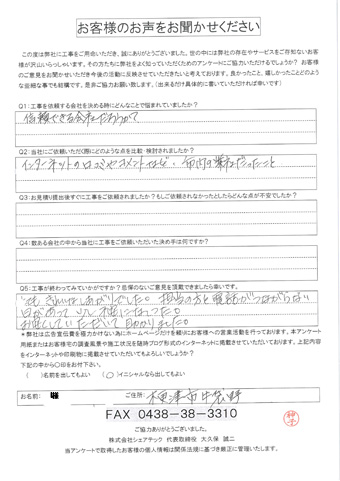 お客様のお声をお聞かせください
この度は弊社に工事をご用命いただき、誠にありがとうございました。世の中には弊社の存在やサービスをご存知ないお客様が沢山いらっしゃいます。その方たちに弊社をよく知っていただくためのアンケートにご協力いただけるでしょうか？お客様のご意見をお聞かせいただき今後の活動に反映させていただきたいと考えております。良かったこと、嬉しかったことどのような些細な事でも結構です。是非ご協力お願い致します。（出来るだけ具体的に書いていただければ幸いです）
Q1：工事を依頼する会社を決める時にどんなことで悩まれていましたか？
信頼できる会社だろうか？
Q2：当社にご依頼いただく際にどのような点を比較・検討されましたか？
インターネットの口コミやコメントなど、市内の業者だったこと
Q3：お見積り提出後すぐに工事をご依頼されましたか？もしご依頼されなかったとしたらどんな点が不安でしたか？
Q4：数ある会社の中から当社に工事をご依頼いただいた決め手は何ですか？
Q5：工事が終わってみていかがですか？忌憚のないご意見を頂戴できましたら幸いです。
きれいなしあがりでした。担当の方と電話がつながらない
日があって少し不安になった。
していただいて助かりました。
＊弊社は広告宣伝費を極力かけない為にホームページだけを頼りにお客様への営業活動を行っております。本アンケート用紙またはお客様宅の調査風景や施工状況を随時ブログ形式のインターネットに掲載させていただいております。上記内容をインターネットや印刷物に掲載させていただいてもよろしいでしょうか？
下記の中から〇印をお付下さい。
（　）名前を出してもよい　（〇）イニシャルなら出してもよい
お名前：　ご住所：木更津市牛袋野
FAX 0438-38-3310
ご協力ありがとうございました。
株式会社シェアテック 代表取締役 大久保 誠二
当アンケートで取得したお客様の個人情報は関係法規に基づき厳正に管理いたします。